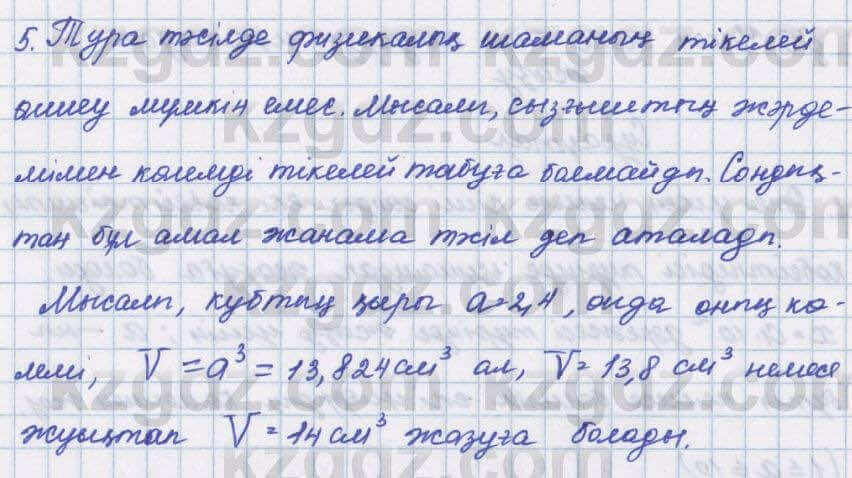 5. Тура тәсілде физикалық шаманың тікелей
өлшеу мүмкін емес. Мысалы, сызғыштың жәрде-
мімен көлемді тікелей табуға болмайды. Сондық-
тан бұл амал жанама тәсіл деп аталады.
Мысалы, кубтың қыры a=2,4, онда оның кө-
лемі, V=a³=13,824см³ ал, V=13,8 см³ немесе
жуықтап V=14см³ жазуға болады.
kzgdz.com